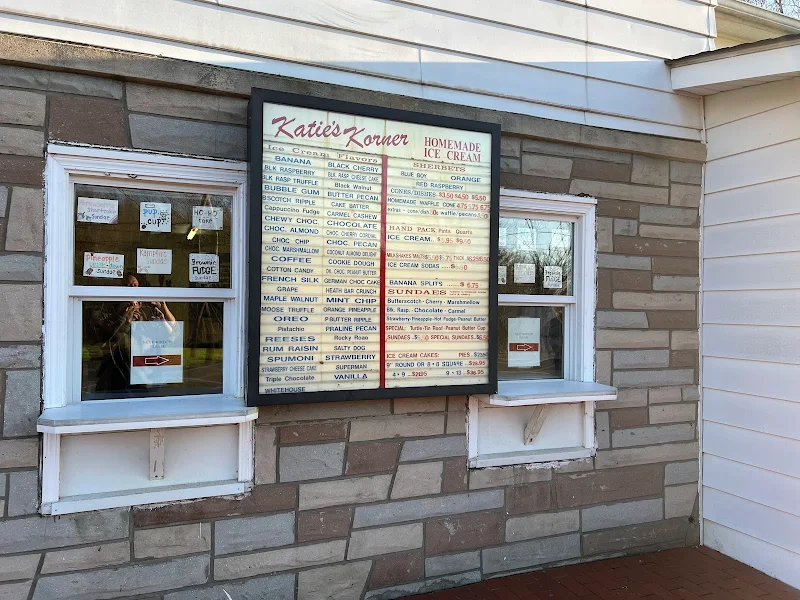 Katie's Korner
HOMEMADE
ICE CREAM
Ice Cream Flavors
BANANA
BLK RASPBERRY
BLK RASP TRUFFLE
BUBBLE GUM
BSCOTCH RIPPLE
Cappuccino Fudge
CHEWY CHOC.
CHOC. ALMOND
CHOC CHIP
CHOC. MARSHMALLOW
COFFEE
COTTON CANDY
FRENCH SILK
GRAPE
MAPLE WALNUT
MOOSE TRUFFLE
OREO
Pistachio
REESES
RUM RAISIN
SPUMONI
STRAWBERRY CHEESE CAKE
Triple Chocolate
WHITEHOUSE
BLACK CHERRY
BLK. RASP CHEESE CAKE
Black Walnut
BUTTER PECAN
CAKE BATTER
CARMEL CASHEW
CHOCOLATE
CHOC CHERRY CORDIAL
CHOC PECAN
COCONUT ALMOND DELIGHT
COOKIE DOUGH
DK. CHOC. PEANUT BUTTER
GERMAN CHOC CAKE
HEATH BAR CRUNCH
MINT CHIP
ORANGE PINEAPPLE
P.BUTTER RIPPLE
PRALINE PECAN
Rocky Road
SALTY DOG
STRAWBERRY
SUPERMAN
VANILLA
SHERBETS
BLUE BOY ORANGE
RED RASPBERRY
CONES/DISHES $3.50 $4.50 $5.50
HOMEMADE WAFFLE CONE 4.75 5.75 6.75
extras - cone/dish waffle/pecans
HAND PACK Pints Quarts
ICE CREAM
MILKSHAKES MALTS
ICE CREAM SODAS
BANANA SPLITS $6.75
SUNDAES
Butterscotch - Cherry - Marshmallow
Blk. Rasp. - Chocolate - Carmel
Strawberry-Pineapple-Hot Fudge-Peanut Butter
SPECIAL: Turtle-Tin Roof-Peanut Butter Cup
SUNDAES SPECIAL SUNDAES
ICE CREAM CAKES: PIES
9" ROUND OR 8 × 8 SQUARE
9 × 13
Sundae
PUP
CUP
HO-HO
Cake
Pineapple
Sundae
Kampfire
Sundae
Brownie
FUDGE
Sundae